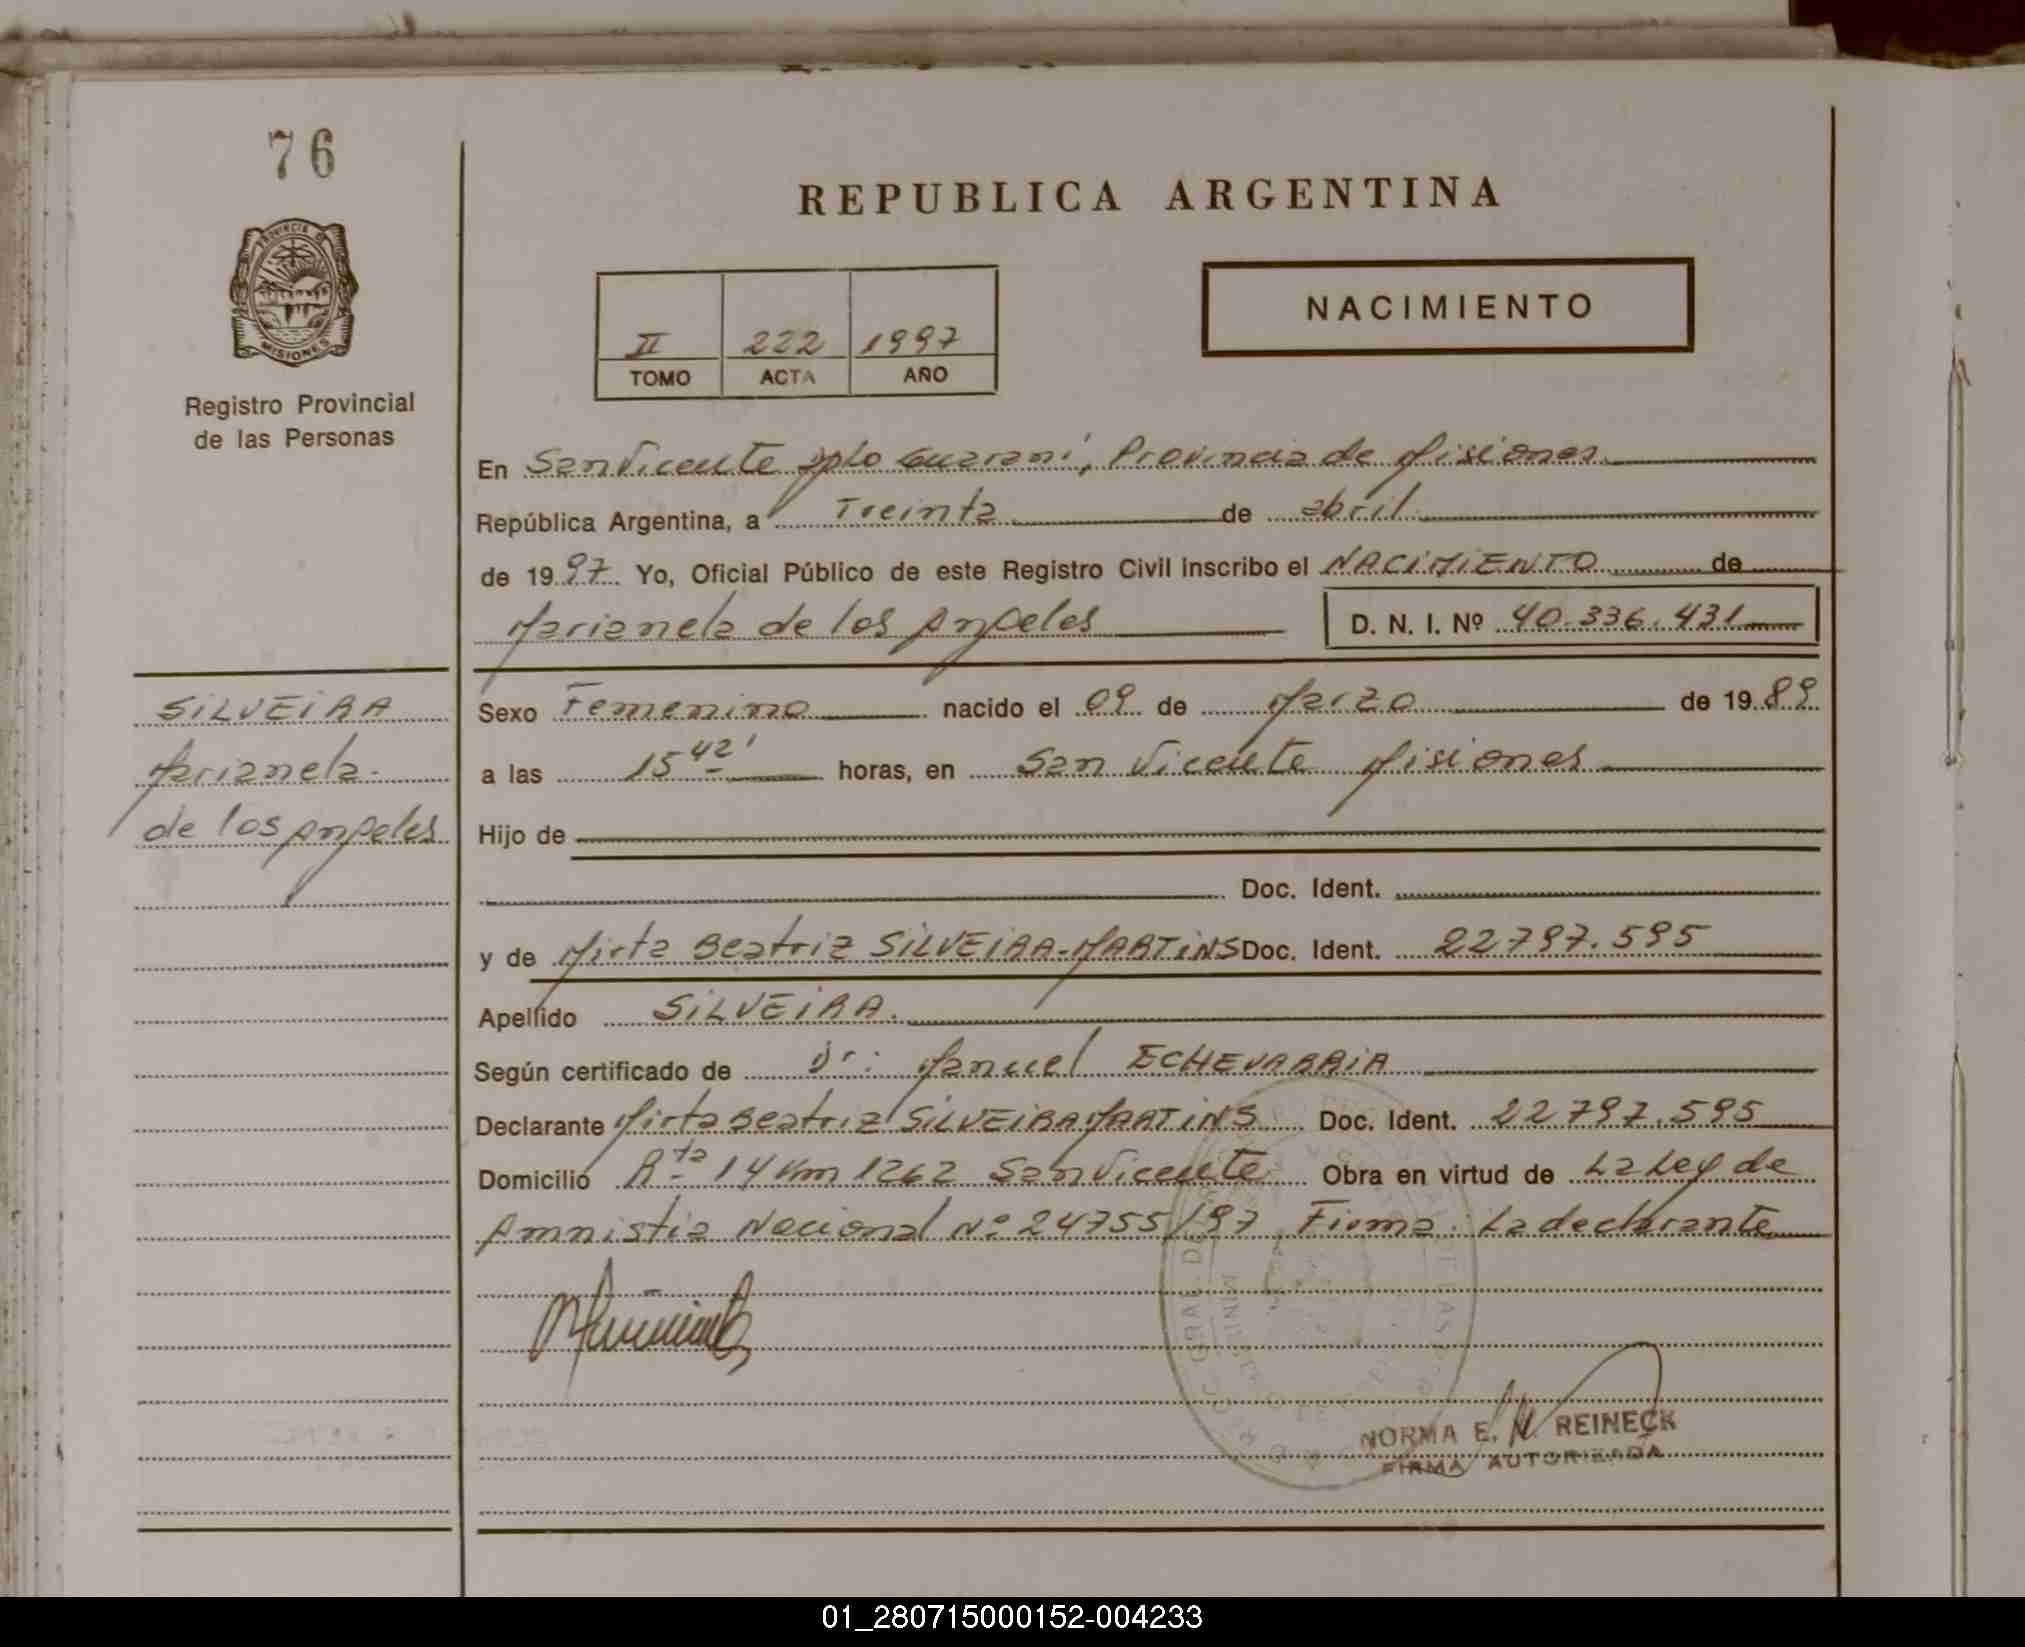 76
REPUBLICA ARGENTINA
PROVINCIA DE
MISIONES
NACIMIENTO
II 222 1997
TOMO ACTA AÑO
Registro Provincial
de las Personas
En San Vicente Dpto Guaraní, Provincia de Misiones
República Argentina, a Treinta de abril
de 1997 Yo, Oficial Público de este Registro Civil inscribo el NACIMIENTO de
Marianela de los Angeles D. N. I. Nº 40.336.431
SILVEIRA
Marianela
de los Angeles
Sexo Femenino nacido el 09 de Marzo de 1989
a las 15 42' horas, en San Vicente Misiones
Hijo de
Doc. Ident.
y de Mirta Beatriz SILVEIRA-MARTINS Doc. Ident. 22797.595
Apellido SILVEIRA.
Según certificado de Dr: Manuel ECHEVARRIA
Declarante Mirta Beatriz SILVEIRA MARTINS Doc. Ident. 22797.595
Domicilio Rta 14 Km 1262 San Vicente Obra en virtud de La Ley de
Amnistia Nacional Nº 24755/97 Firma: La declarante
NORMA E. M. REINECK
FIRMA AUTORIZADA
01_280715000152-004233